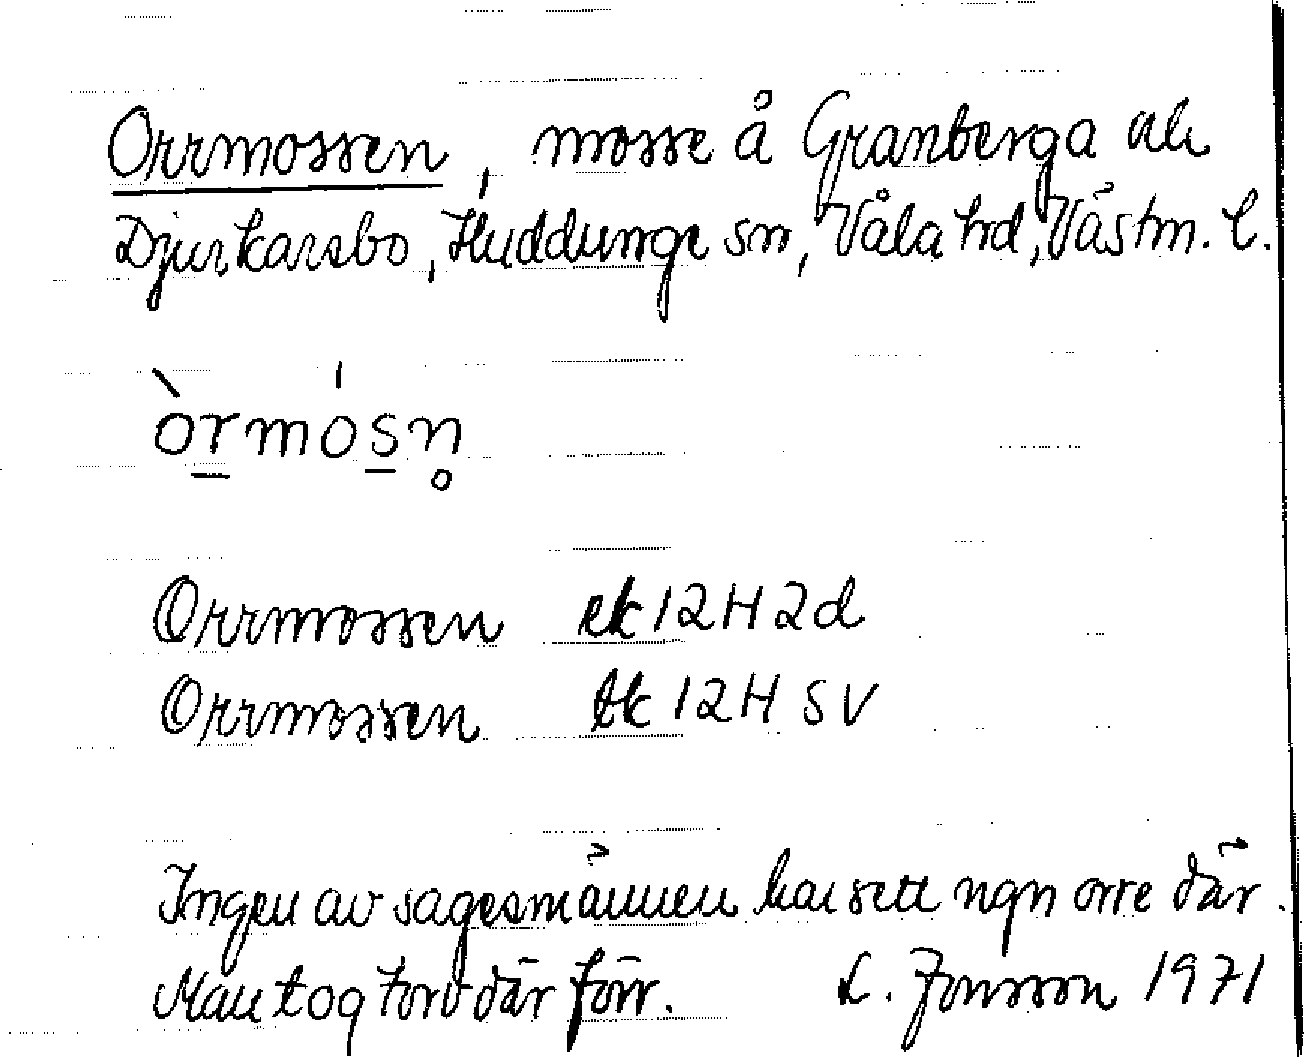 Orrmossen, mosse å Granberga och
Djurkarsbo, Huddunge sn, Våla hd, Västm. l.
òrmósn̥
Orrmossen ek 12H2d
Orrmossen tk 12H SV
Ingen av sagesmännen har sett ngn orre där.
Man tog torv där förr. L. Jonsson 1971